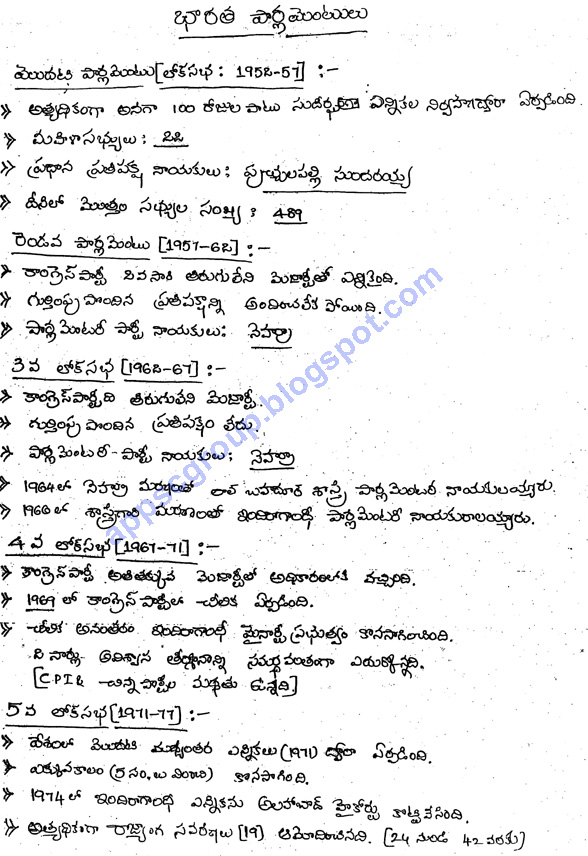 భారత పార్లమెంటులు
మొదటి పార్లమెంటు [లోకసభ : 1952-57] :-
» అత్యధికంగా అనగా 100 రోజుల పాటు సుదీర్ఘ ఎన్నికల నిర్వహణద్వారా ఏర్పడింది.
» మహిళాసభ్యులు : 22
» ప్రధాన ప్రతిపక్ష నాయకులు : పుచ్చలపల్లి సుందరయ్య
» దీనిలో మొత్తం సభ్యుల సంఖ్య : 489
రెండవ పార్లమెంటు [1957-62] :-
» కాంగ్రెస్ పార్టీ 2వ సారి తిరుగులేని మెజార్టీతో ఎన్నికైంది.
» గుర్తింపు పొందిన ప్రతిపక్షాన్ని అందించలేక పోయింది.
» పార్లమెంటరీ పార్టీ నాయకులు : నెహ్రూ
3వ లోకసభ [1962-67] :-
» కాంగ్రెస్ పార్టీది తిరుగులేని మెజార్టీ.
» గుర్తింపు పొందిన ప్రతిపక్షం లేదు.
» పార్లమెంటరీ-పార్టీ నాయకులు : నెహ్రూ
» 1964లో నెహ్రూ మరణంతో లాల్ బహదూర్ శాస్త్రి పార్లమెంటరీ నాయకులయ్యారు.
» 1966లో శాస్త్రిగారి మరణంతో ఇందిరాగాంధీ పార్లమెంటరీ నాయకురాలయ్యారు.
4వ లోకసభ [1967-71] :-
» కాంగ్రెస్ పార్టీ అతితక్కువ మెజార్టీలో అధికారంలోకి వచ్చింది.
» 1969లో కాంగ్రెస్ పార్టీలో చీలిక ఏర్పడింది.
» చీలిక అనంతరం ఇందిరాగాంధీ మైనార్టీ ప్రభుత్వం కొనసాగించింది.
2 సార్లు అవిశ్వాస తీర్మానాన్ని సమర్థవంతంగా ఎదుర్కొన్నది.
[C.P.I & చిన్న పార్టీల మద్దతు ఉన్నది]
5వ లోకసభ [1971-77] :-
» దేశంలో మొదటి మధ్యంతర ఎన్నికలు (1971) ద్వారా ఏర్పడింది.
» ఎక్కువకాలం (5 సం.లు మించి) కొనసాగింది.
» 1974లో ఇందిరాగాంధీ ఎన్నికను అలహాబాద్ హైకోర్టు కొట్టివేసింది.
» అత్యధికంగా రాజ్యాంగ సవరణలు [19] ఆమోదించినది. [24 నుండి 42 వరకు]
appscgroup.blogspot.com